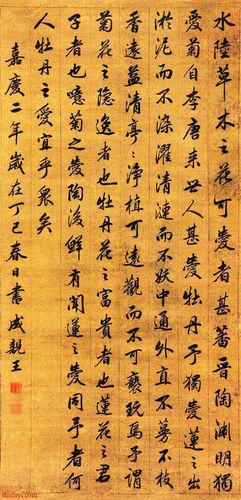 水陸草木之花可愛者甚蕃晉陶淵明獨
愛菊自李唐来世人甚愛牡丹予獨愛蓮之出
淤泥而不染濯清漣而不妖中通外直不蔓不枝
香遠益清亭〻淨植可遠觀而不可褻玩焉予謂
菊花之隱逸者也牡丹花之富貴者也蓮花之君
子者也噫菊之愛陶後鮮有聞蓮之愛同予者何
人牡丹之愛宜乎眾矣
嘉慶二年歲在丁巳春日書成親王